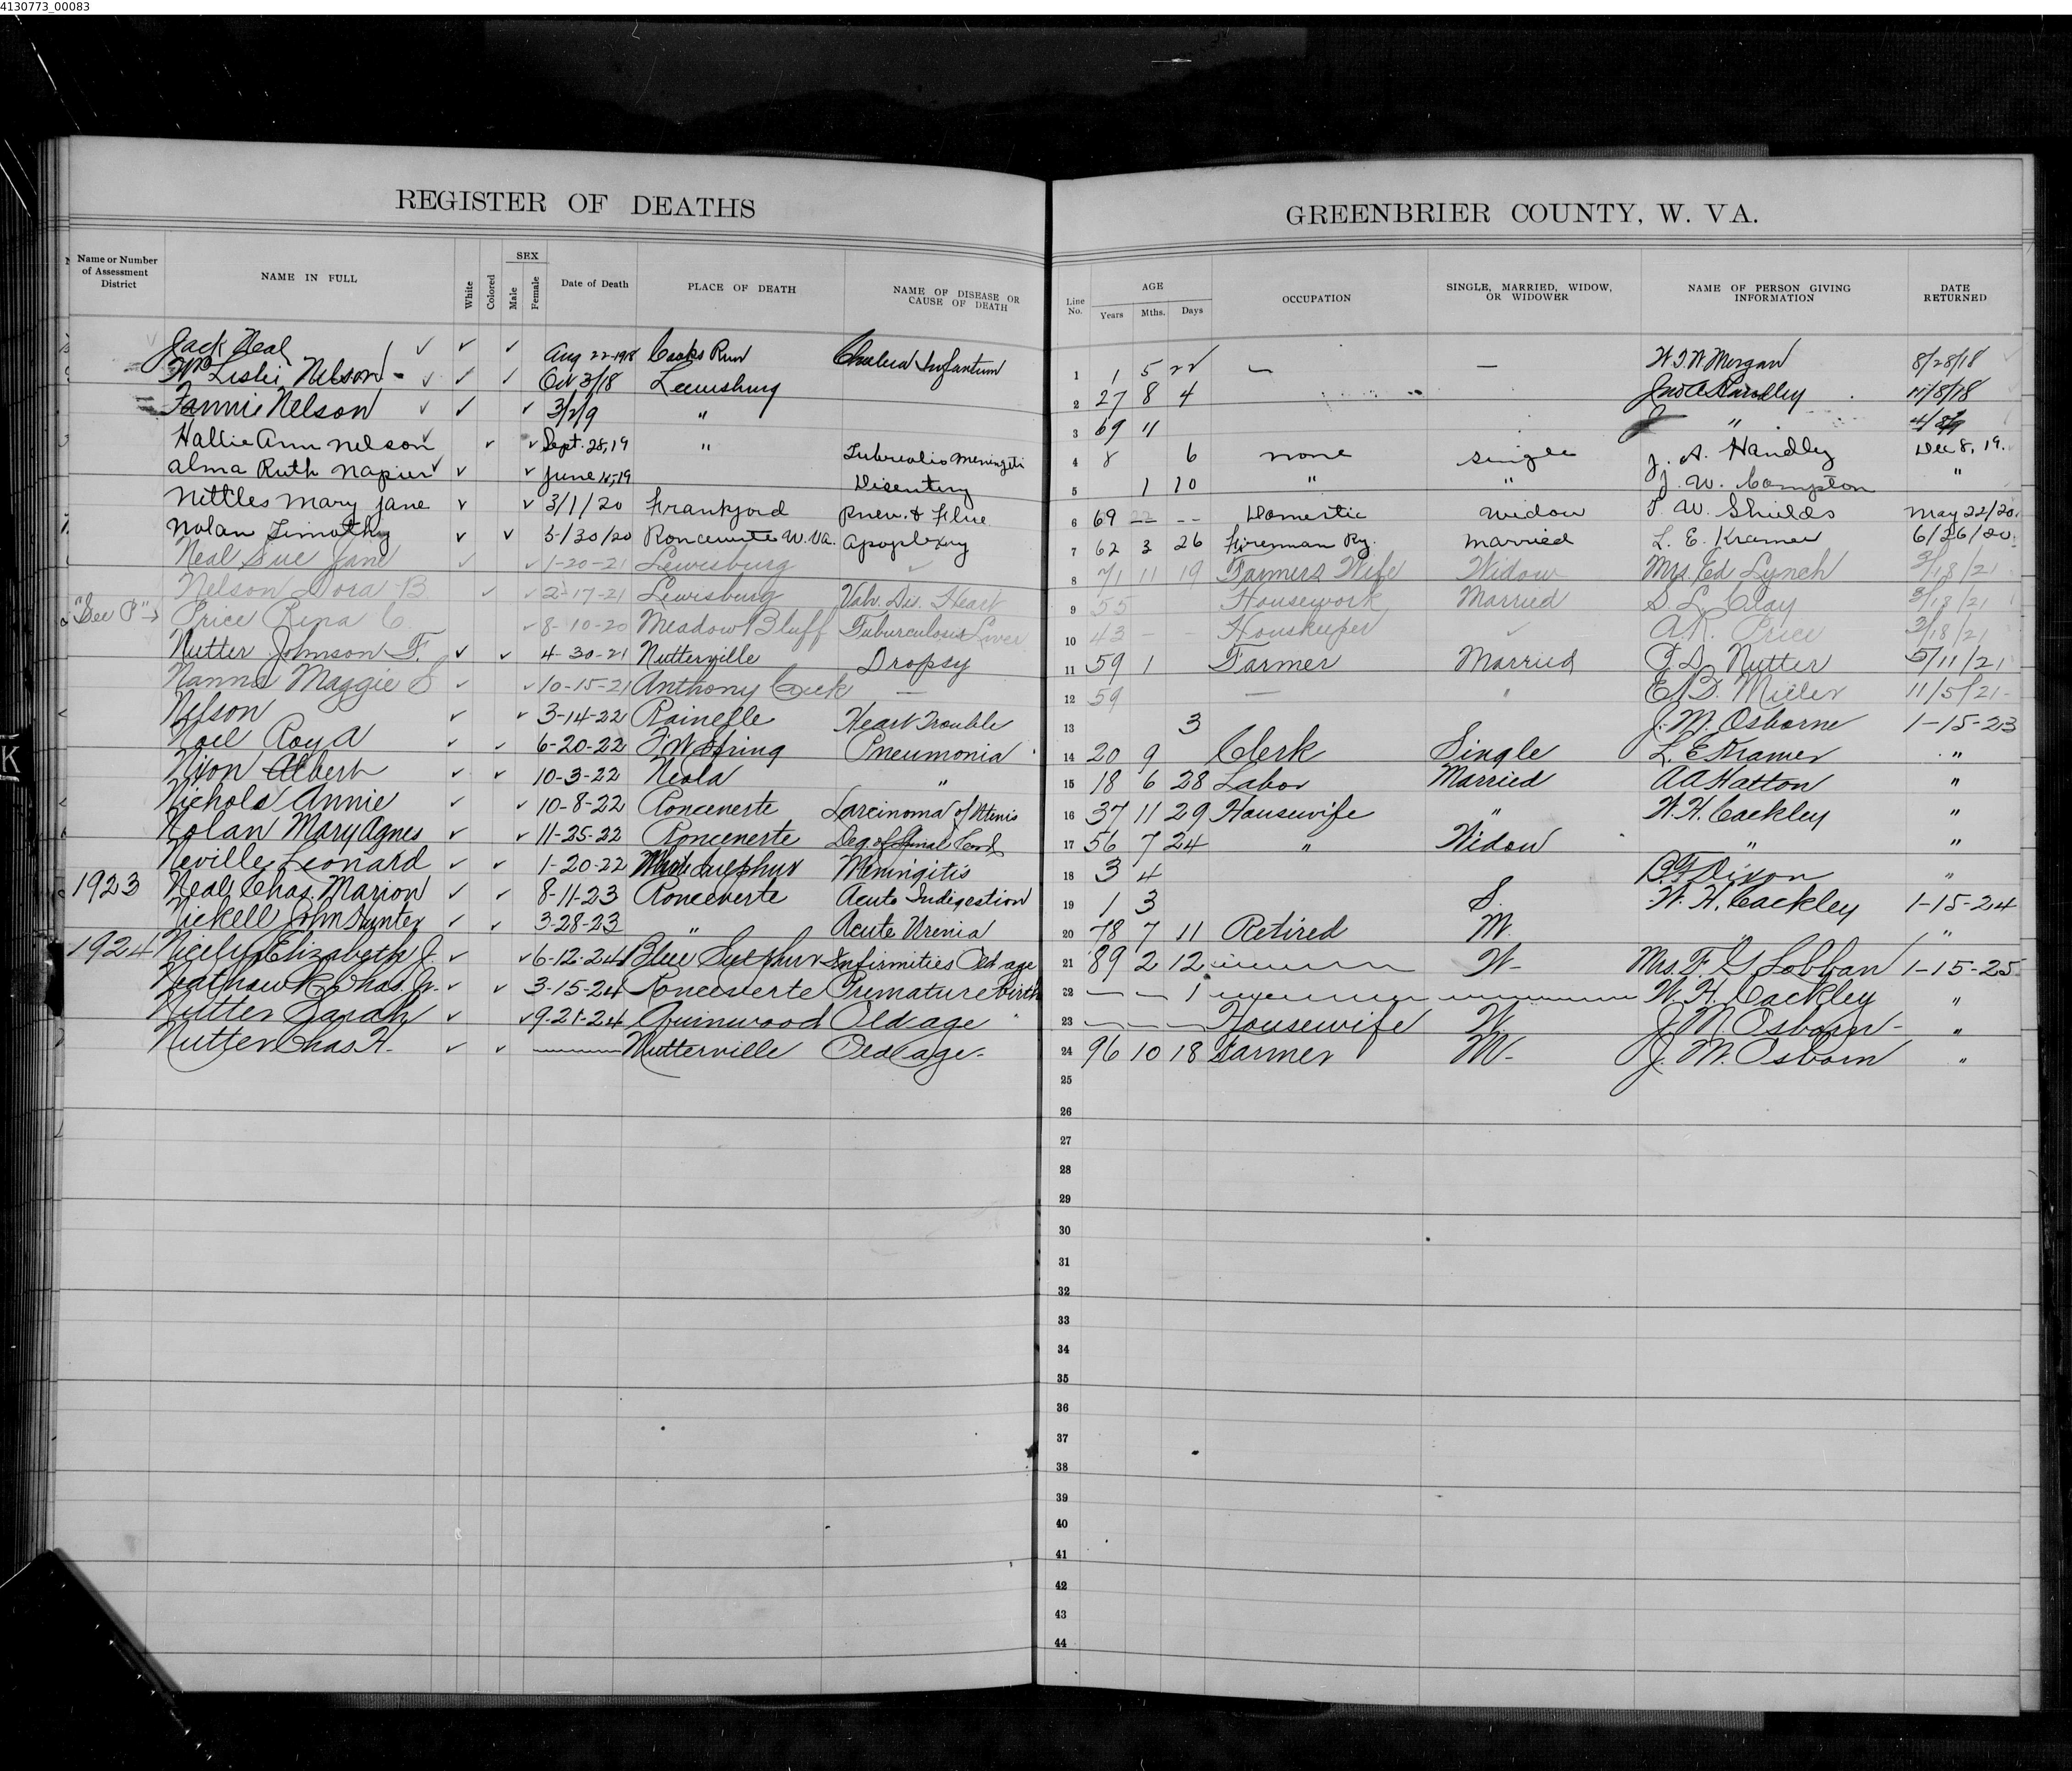 4130773_00083
REGISTER OF DEATHS
GREENBRIER COUNTY, W. VA.
Name or Number of Assessment District
NAME IN FULL
White
Colored
SEX
Male
Female
Date of Death
PLACE OF DEATH
NAME OF DISEASE OR CAUSE OF DEATH
Line No.
AGE
Years
Mths.
Days
OCCUPATION
SINGLE, MARRIED, WIDOW, OR WIDOWER
NAME OF PERSON GIVING INFORMATION
DATE RETURNED
Jack Neal ✓ ✓ ✓ Aug 22-1918 Cooks Run Cholera Infantum 1 1 5 22 — — W.T.W Morgan 8/28/18
Wm Leslie Nelson - ✓ ✓ ✓ Oct 3/18 Lewisburg 2 27 8 4 Jno A Handley 11/8/18
Fannie Nelson ✓ ✓ ✓ 3/2/9 " 3 69 11 "
Hallie Ann Nelson ✓ ✓ ✓ Sept. 28,19 " Tuberculis Meningeti 4 8 6 none single J. A. Handley Dec 8, 19.
Alma Ruth Napier ✓ ✓ ✓ June 15,19 Disentery 5 1 10 " " J. W. Compton "
Nettles Mary Jane ✓ ✓ 3/1/20 Frankford Pneu. & Flue 6 69 -- -- Domestic Widow T. W. Shields May 22/20.
Nolan Timothy ✓ ✓ 5/30/20 Ronceverte W. Va. Apoplexy 7 62 3 26 Fireman Ry. Married L. E. Kramer 6/26/20.
Neal Sue Jane ✓ ✓ 1-20-21 Lewisburg ✓ 8 71 11 19 Farmers Wife Widow Mrs. Ed Lynch 3/18/21
Nelson Dora B. ✓ ✓ 2-17-21 Lewisburg Valv. Dis. Heart 9 55 Housework Married S. L. Clay 3/18/21
"See P" → Price Rena C. ✓ 8-10-20 Meadow Bluff Tuburculosis Liver 10 43 - - Houskeeper ✓ A.R. Price 3/18/21
Nutter Johnson F. ✓ ✓ 4-30-21 Nutterville Dropsy 11 59 1 Farmer Married T. D. Nutter 5/11/21
Nanna Maggie S ✓ ✓ 10-15-21 Anthony Creek — 12 59 — " E. B. Miller 11/5/21-
Nelson ✓ ✓ 3-14-22 Rainelle Heart Trouble 13 3 J. M. Osborne 1-15-23
Noel Roy A ✓ ✓ 6-20-22 Spring Pneumonia 14 20 9 Clerk Single L. E Kramer "
Nixon Albert ✓ ✓ 10-3-22 Neola " 15 18 6 28 Labor Married A A Hatton "
Nichols Annie ✓ ✓ 10-8-22 Ronceverte Carcinoma of Uterus 16 37 11 29 Housewife " W. H. Cackley "
Nolan Mary Agnes ✓ ✓ 11-25-22 Ronceverte Deg of Spinal Cord 17 56 7 24 " Widow " "
Neville Leonard ✓ ✓ 1-20-22 White Sulphur Meningitis 18 3 4 B. F. Dixon "
1923 Neal Chas. Marion ✓ ✓ 8-11-23 Ronceverte Acute Indigestion 19 1 3 S. W. H. Cackley 1-15-24
Nickell John Hunter ✓ ✓ 3-28-23 " Acute Uremia 20 78 7 11 Retired M. " "
1924 Nicely Elizabeth J. ✓ ✓ 6-12-24 Blue Sulphur Infirmities Old age 21 89 2 12 W- Mrs. F. G Lobban 1-15-25
Chas. Jr. ✓ ✓ 3-15-24 Ronceverte Premature birth 22 — — 1 W. H. Cackley "
Nutter Sarah ✓ ✓ 9-21-24 Quinwood Old age 23 — — — Housewife W. J. M. Osborn- "
Nutter Chas H. ✓ ✓ — Nutterville Old age. 24 96 10 18 Farmer M- J. M. Osborn "
25
26
27
28
29
30
31
32
33
34
35
36
37
38
39
40
41
42
43
44
K